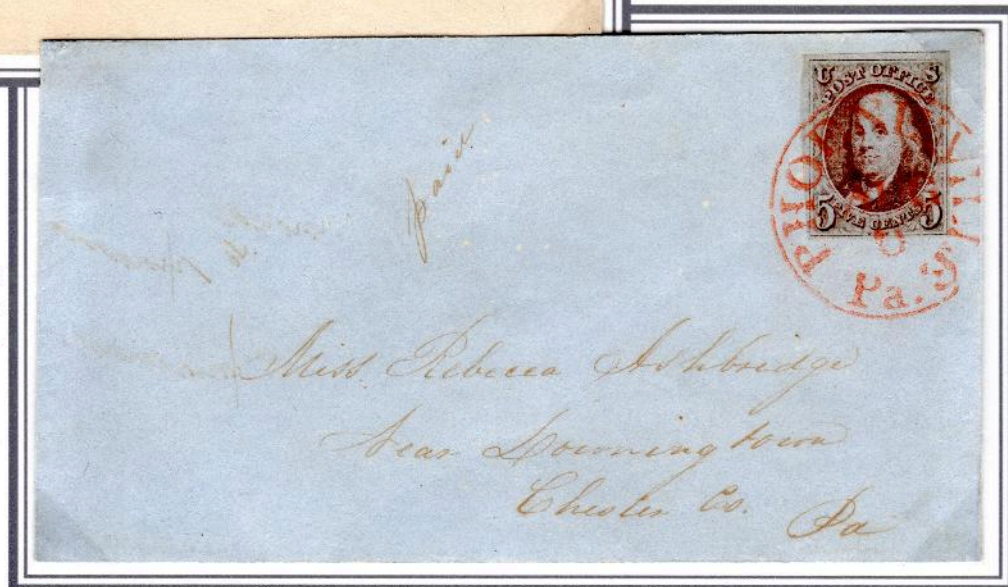 U S
POST OFFICE
5 FIVE CENTS 5
PHOENIXVILLE
5
Pa.
paid
Miss Rebecca Ashbridge
Near Downingtown
Chester Co.
Pa